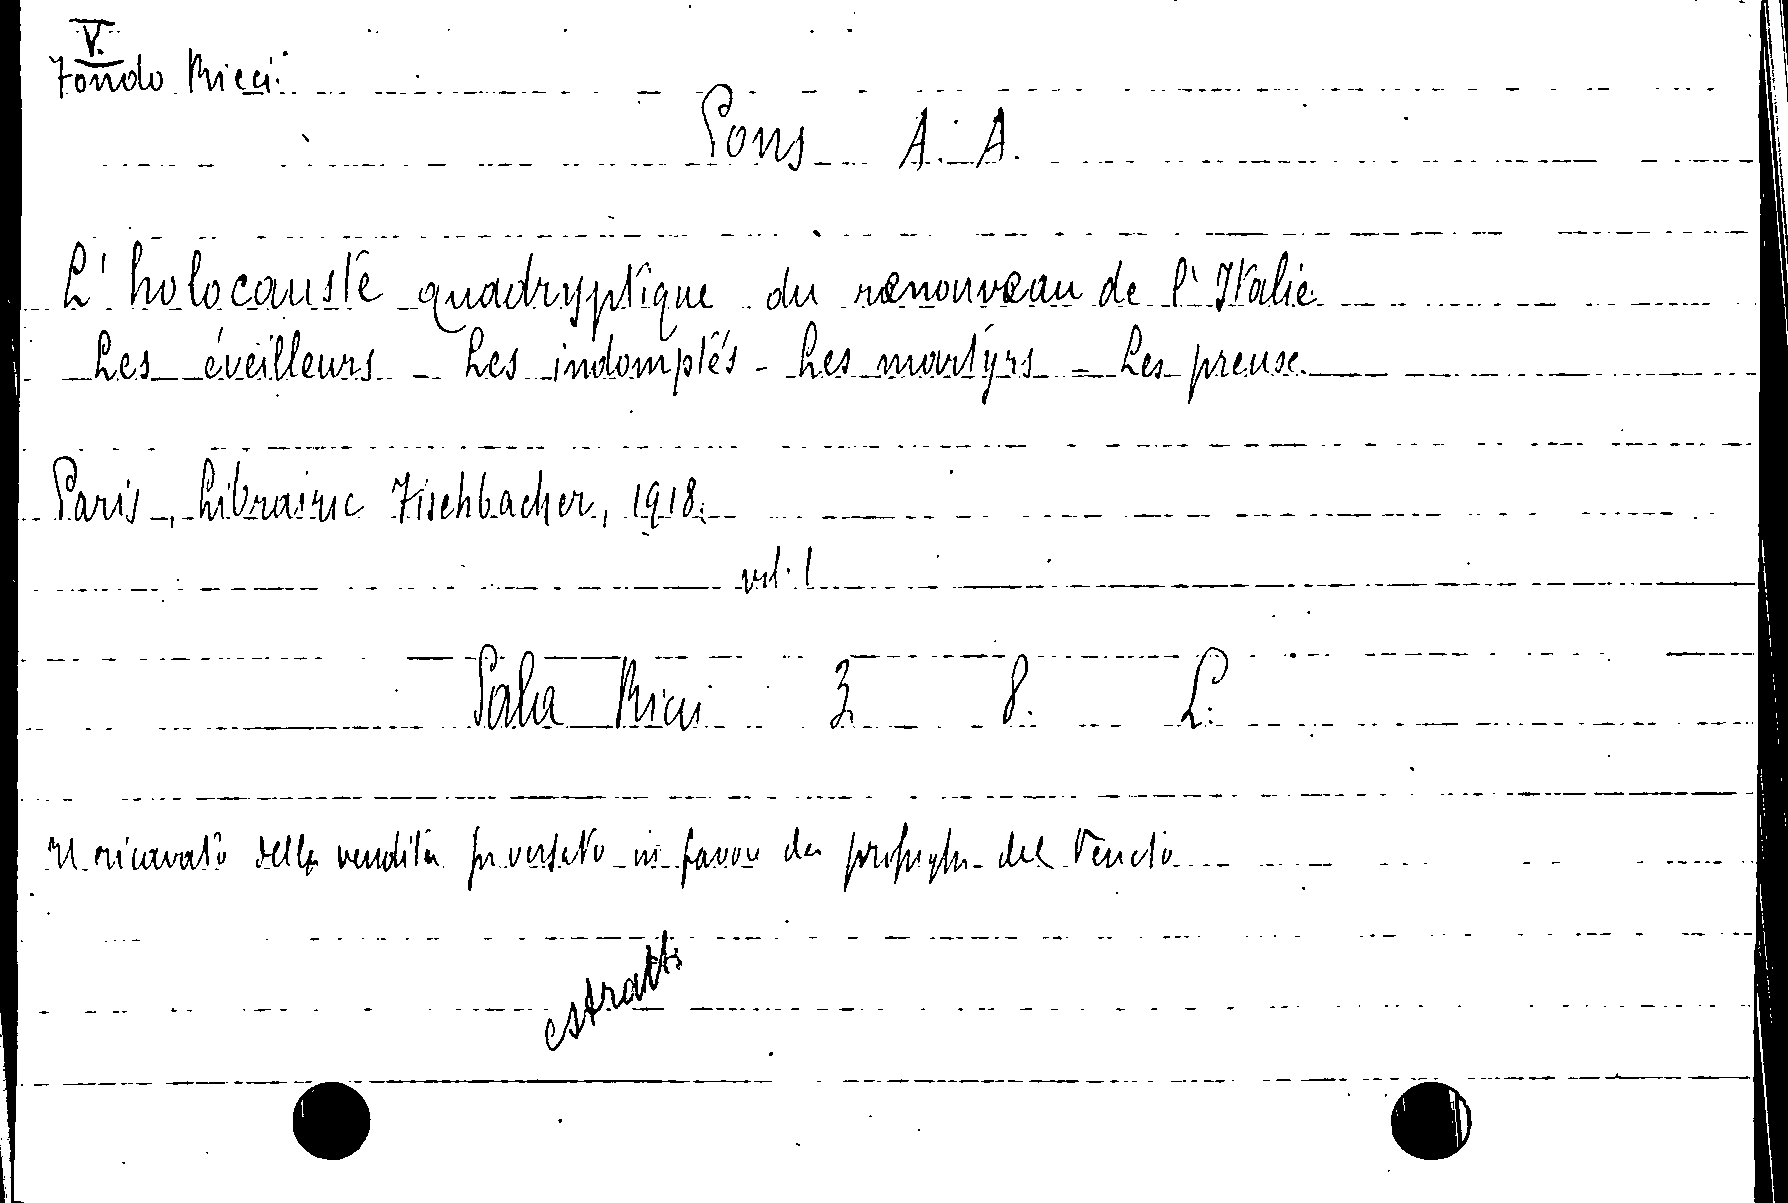 V.
Fondo Ricci
Pons A. A.
L'holocauste quadryptique du renouveau de l'Italie
Les éveilleurs - Les indomptés - Les martyrs - Les preuse.
Paris, Librairie Fischbacher, 1918.
vol. 1
Sala Ricci 3. 8. L.
Il ricavato della vendita fu versato in favore dei profughi del Veneto
estratto